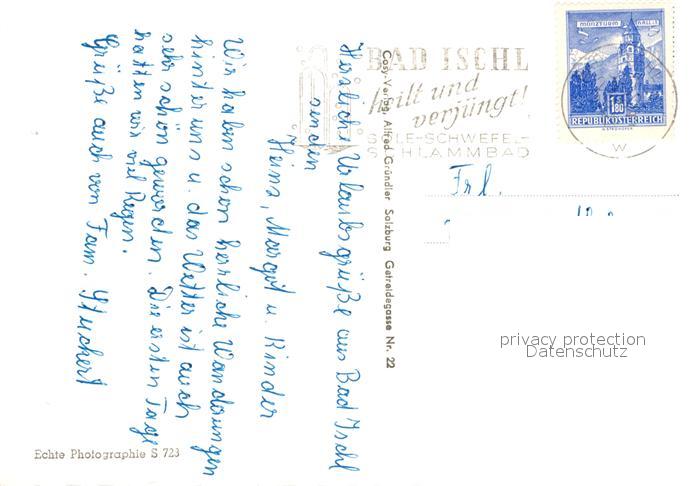 Herzliche Urlaubsgrüße aus Bad Ischl
senden
Heinz, Margot u. Kinder
Wir haben schon herrliche Wanderungen
hinter uns u. das Wetter ist auch
sehr schön geworden. Die ersten Tage
hatten wir viel Regen.
Grüße auch von Fam. Stuckert
Cosy-Verlag, Alfred Gründler Salzburg Getreidegasse Nr. 22
BAD ISCHL
heilt und
verjüngt!
SOLE-SCHWEFEL-
SCHLAMMBAD
MÜNZTURM HALL i. T.
1.80
REPUBLIK ÖSTERREICH
W
Frl.
privacy protection
Datenschutz
Echte Photographie S 723